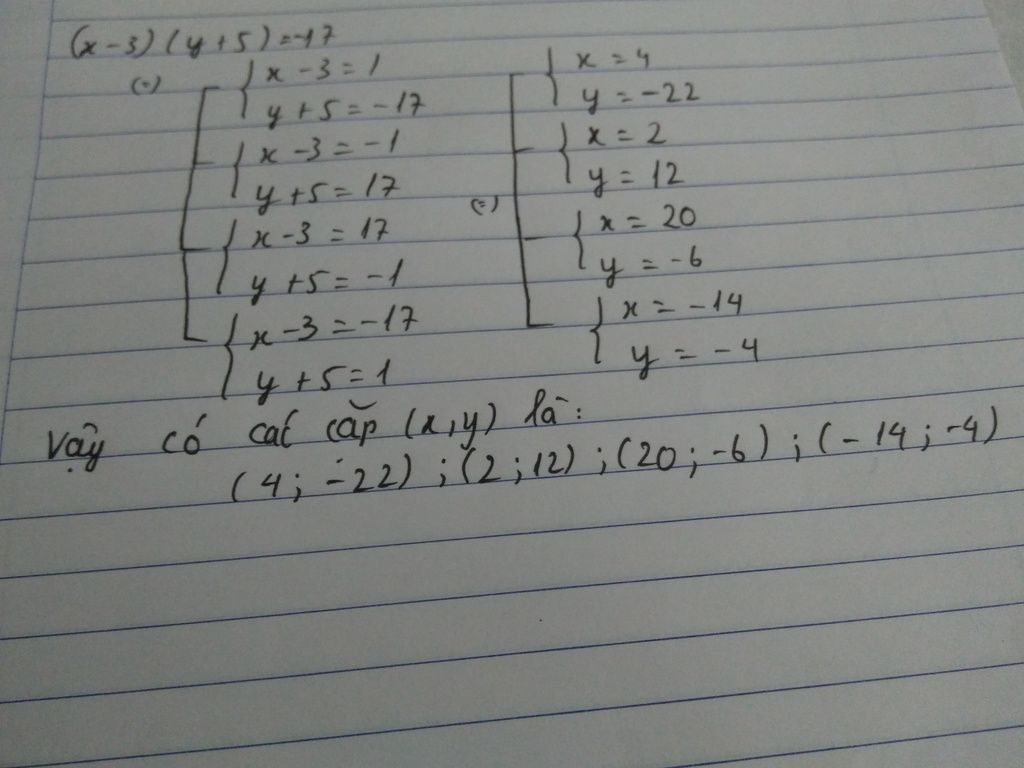 (x-3)(y+5)=-17
(=) { x-3=1
{ y+5=-17
{ x-3=-1
{ y+5=17
{ x-3=17
{ y+5=-1
{ x-3=-17
{ y+5=1
(=) { x=4
{ y=-22
{ x=2
{ y=12
{ x=20
{ y=-6
{ x=-14
{ y=-4
Vậy có các cặp (x,y) là:
(4; -22) ; (2;12) ; (20;-6) ; (-14;-4)